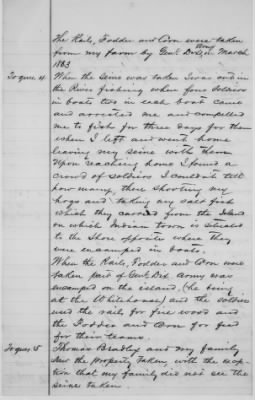 The Rails, Fodder and Corn were taken
from my farm by Genl. Dix's army in March
1863
To ques 4. When the seine was taken I was out in
the River fishing when four soldiers
in boats two in each boat came
and arrested me and compelled
me to fish for three days for them
when I left and went home
leaving my seine with them
Upon reaching home I found a
crowd of soldiers I couldn't tell
how many, there shooting my
hogs and taking my salt fish
which they carried from the Island
on which Indian town is situated
to the Shore opposite where they
were encamped in boats.
When the Rails, Fodder and Corn were
taken part of Genl Dix Army was
encamped on the island, (he being
at the Whitehouse) and the soldiers
used the rails for fire wood and
the Fodder and Corn for feed
for their teams.
To ques. 5 Thomas Bradley and my family
saw the property taken, with the excep-
tion that my family did not see the
seine taken